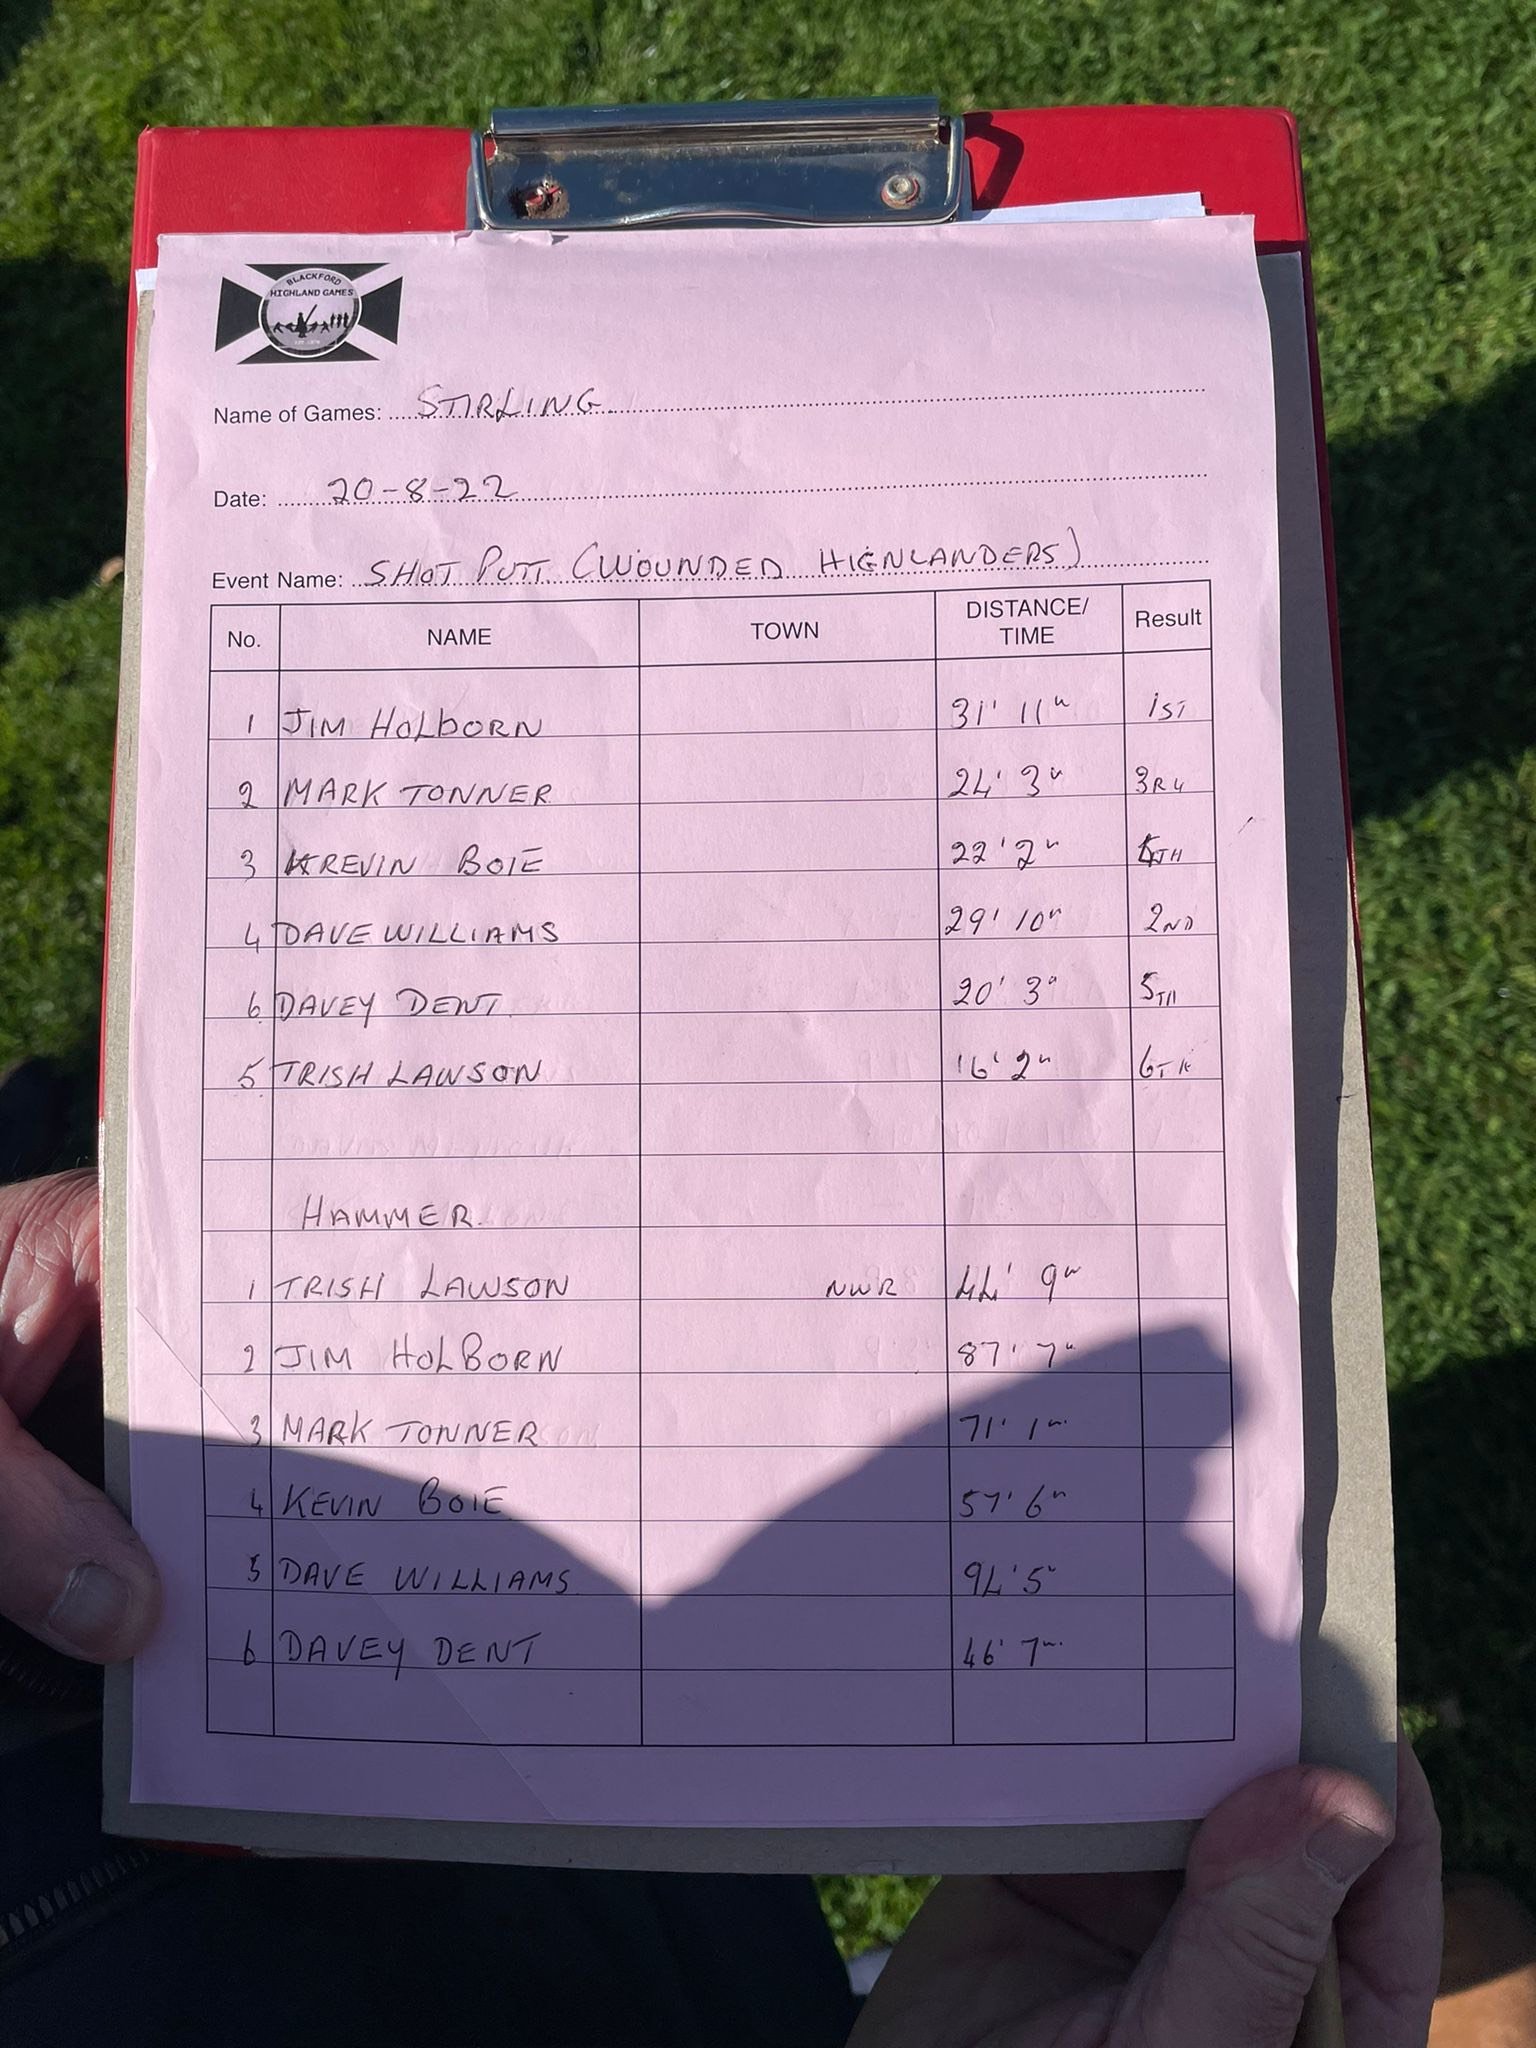 BLACKFORD
HIGHLAND GAMES
Name of Games: STIRLING
Date: 20-8-22
Event Name: SHOT PUTT (WOUNDED HIGHLANDERS)
No. NAME TOWN DISTANCE/ TIME Result
1 JIM HOLBORN 31' 11" 1ST
2 MARK TONNER 24' 3" 3RD
3 KREVIN BOIE 22' 2" 4TH
4 DAVE WILLIAMS 29' 10" 2ND
6 DAVEY DENT 20' 3" 5TH
5 TRISH LAWSON 16' 2" 6TH
HAMMER
1 TRISH LAWSON NWR 44' 9"
2 JIM HOLBORN 87' 7"
3 MARK TONNER 71' 1"
4 KEVIN BOIE 57' 6"
5 DAVE WILLIAMS 94' 5"
6 DAVEY DENT 46' 7"